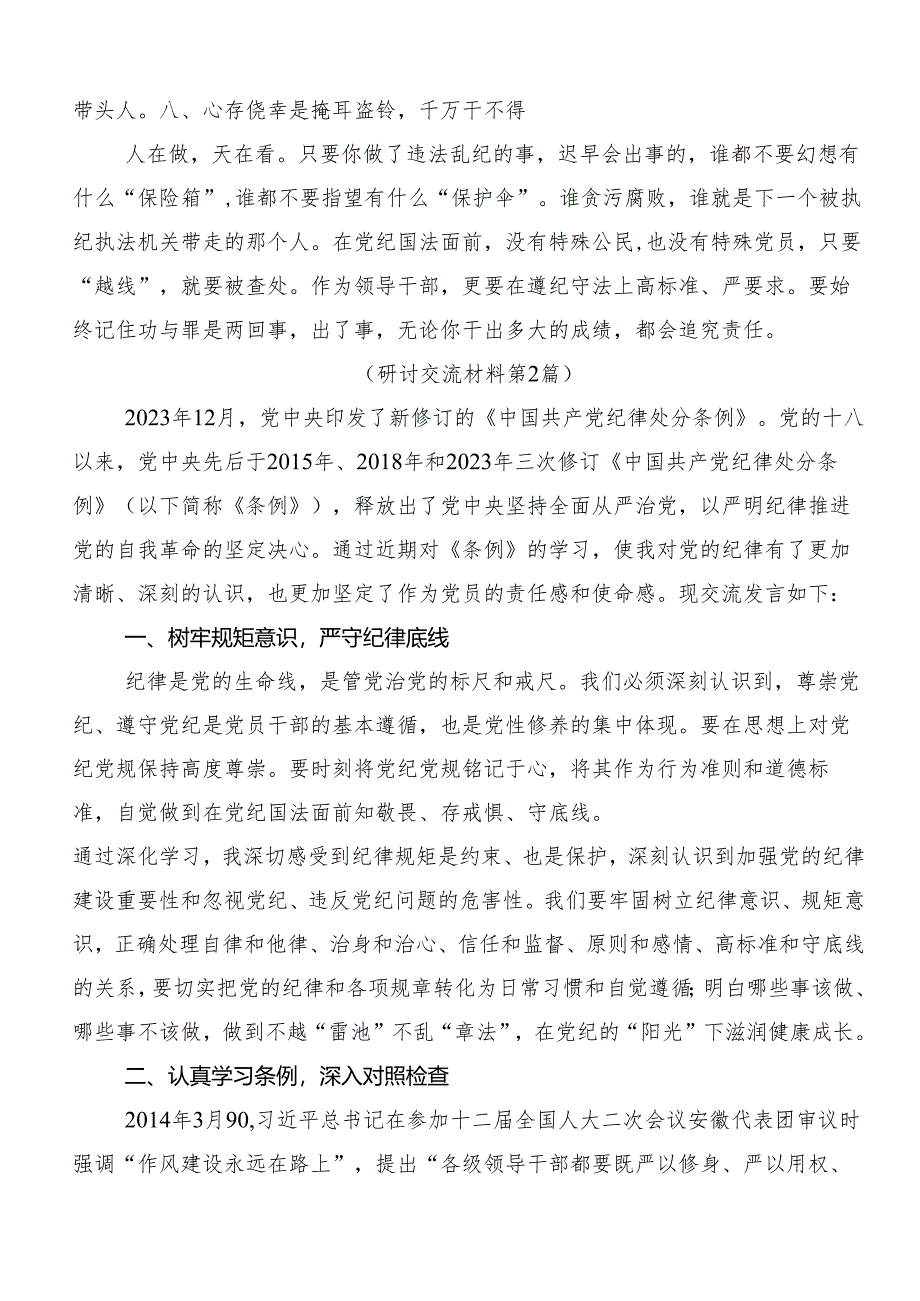 带头人。八、心存侥幸是掩耳盗铃，千万干不得
人在做，天在看。只要你做了违法乱纪的事，迟早会出事的，谁都不要幻想有
什么“保险箱”,谁都不要指望有什么“保护伞”。谁贪污腐败，谁就是下一个被执
纪执法机关带走的那个人。在党纪国法面前，没有特殊公民,也没有特殊党员，只要
“越线”，就要被查处。作为领导干部，更要在遵纪守法上高标准、严要求。要始
终记住功与罪是两回事，出了事，无论你干出多大的成绩，都会追究责任。
（研讨交流材料第2篇）
2023年12月，党中央印发了新修订的《中国共产党纪律处分条例》。党的十八
以来，党中央先后于2015年、2018年和2023年三次修订《中国共产党纪律处分条
例》（以下简称《条例》），释放出了党中央坚持全面从严治党，以严明纪律推进
党的自我革命的坚定决心。通过近期对《条例》的学习，使我对党的纪律有了更加
清晰、深刻的认识，也更加坚定了作为党员的责任感和使命感。现交流发言如下：
一、树牢规矩意识，严守纪律底线
纪律是党的生命线，是管党治党的标尺和戒尺。我们必须深刻认识到，尊崇党
纪、遵守党纪是党员干部的基本遵循，也是党性修养的集中体现。要在思想上对党
纪党规保持高度尊崇。要时刻将党纪党规铭记于心，将其作为行为准则和道德标
准，自觉做到在党纪国法面前知敬畏、存戒惧、守底线。
通过深化学习，我深切感受到纪律规矩是约束、也是保护，深刻认识到加强党的纪律
建设重要性和忽视党纪、违反党纪问题的危害性。我们要牢固树立纪律意识、规矩意
识，正确处理自律和他律、治身和治心、信任和监督、原则和感情、高标准和守底线
的关系，要切实把党的纪律和各项规章转化为日常习惯和自觉遵循；明白哪些事该做、
哪些事不该做，做到不越“雷池”不乱“章法”，在党纪的“阳光”下滋润健康成长。
二、认真学习条例，深入对照检查
2014年3月90,习近平总书记在参加十二届全国人大二次会议安徽代表团审议时
强调“作风建设永远在路上”，提出“各级领导干部都要既严以修身、严以用权、